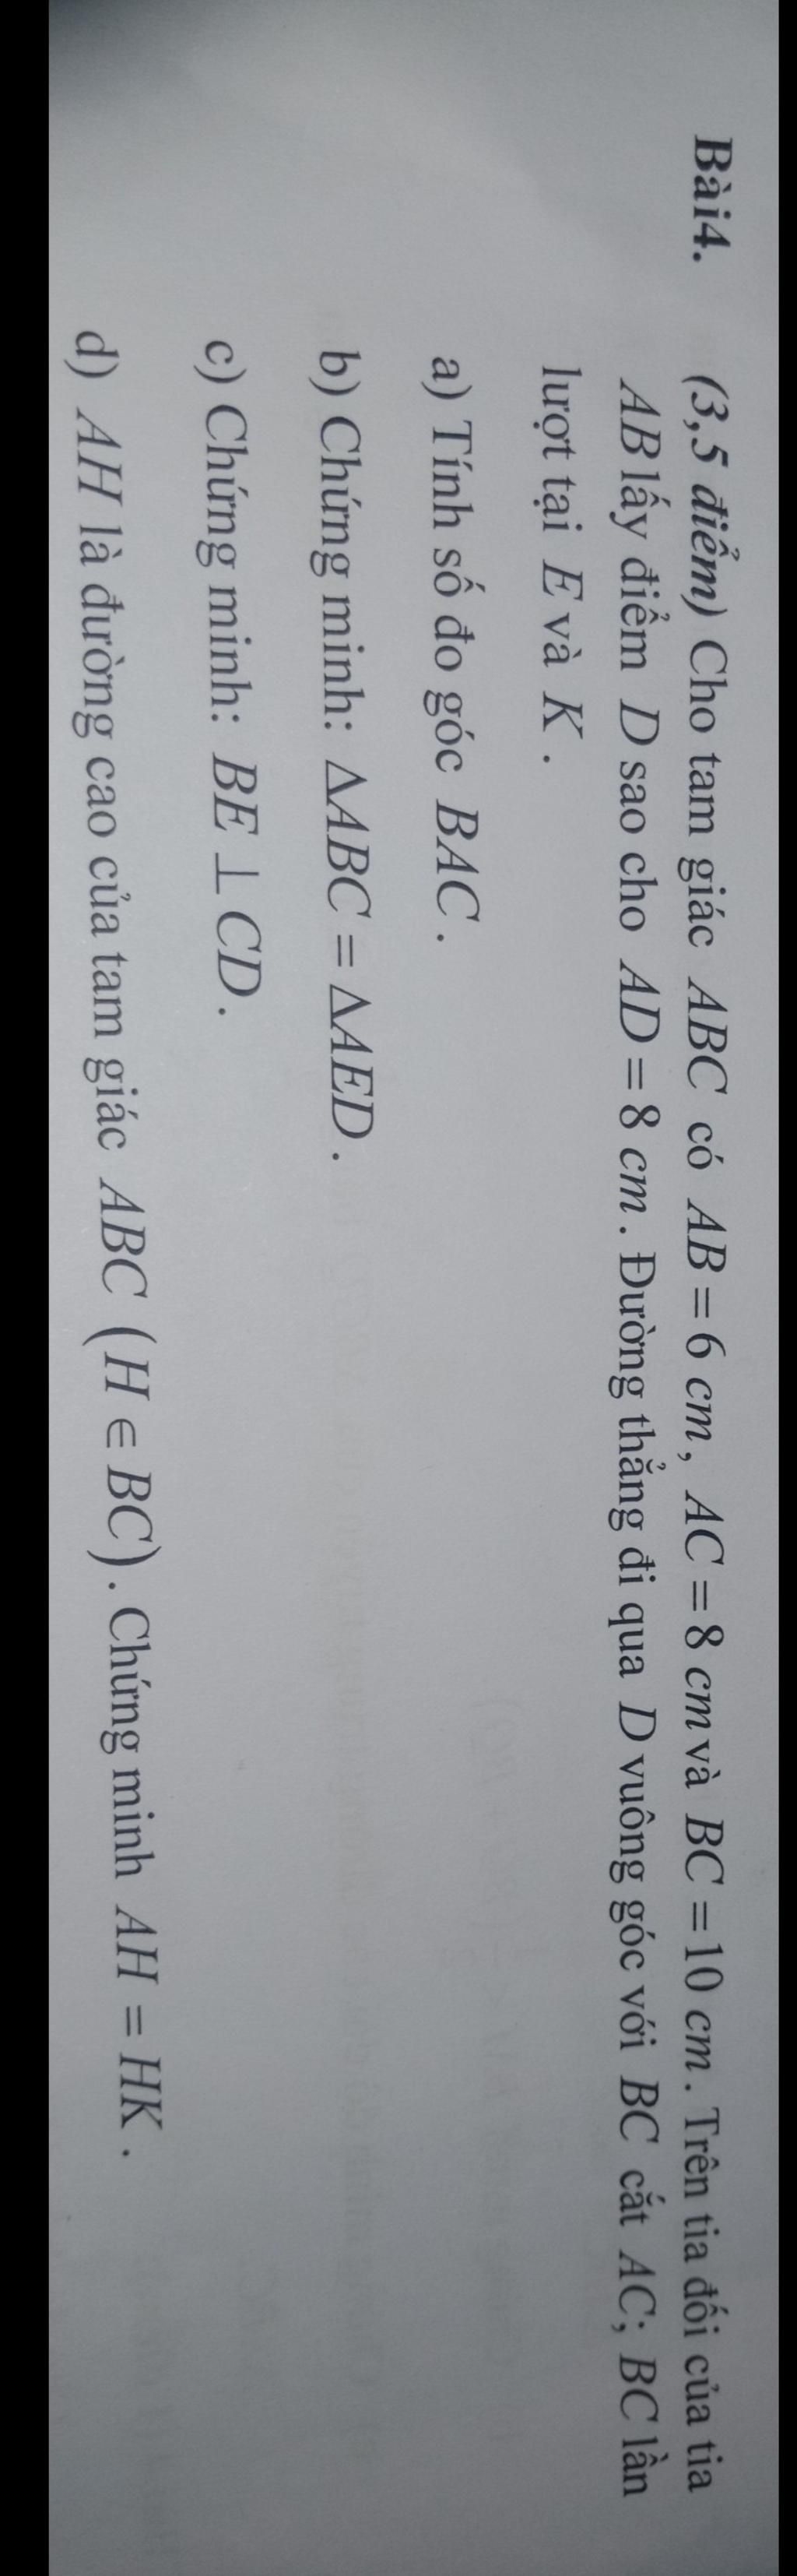 Bài4. (3,5 điểm) Cho tam giác ABC có AB = 6 cm, AC = 8 cm và BC = 10 cm. Trên tia đối của tia
AB lấy điểm D sao cho AD = 8 cm. Đường thẳng đi qua D vuông góc với BC cắt AC; BC lần
lượt tại E và K.
a) Tính số đo góc BAC.
b) Chứng minh: ΔABC = ΔAED.
c) Chứng minh: BE ⊥ CD.
d) AH là đường cao của tam giác ABC (H ∈ BC). Chứng minh AH = HK.